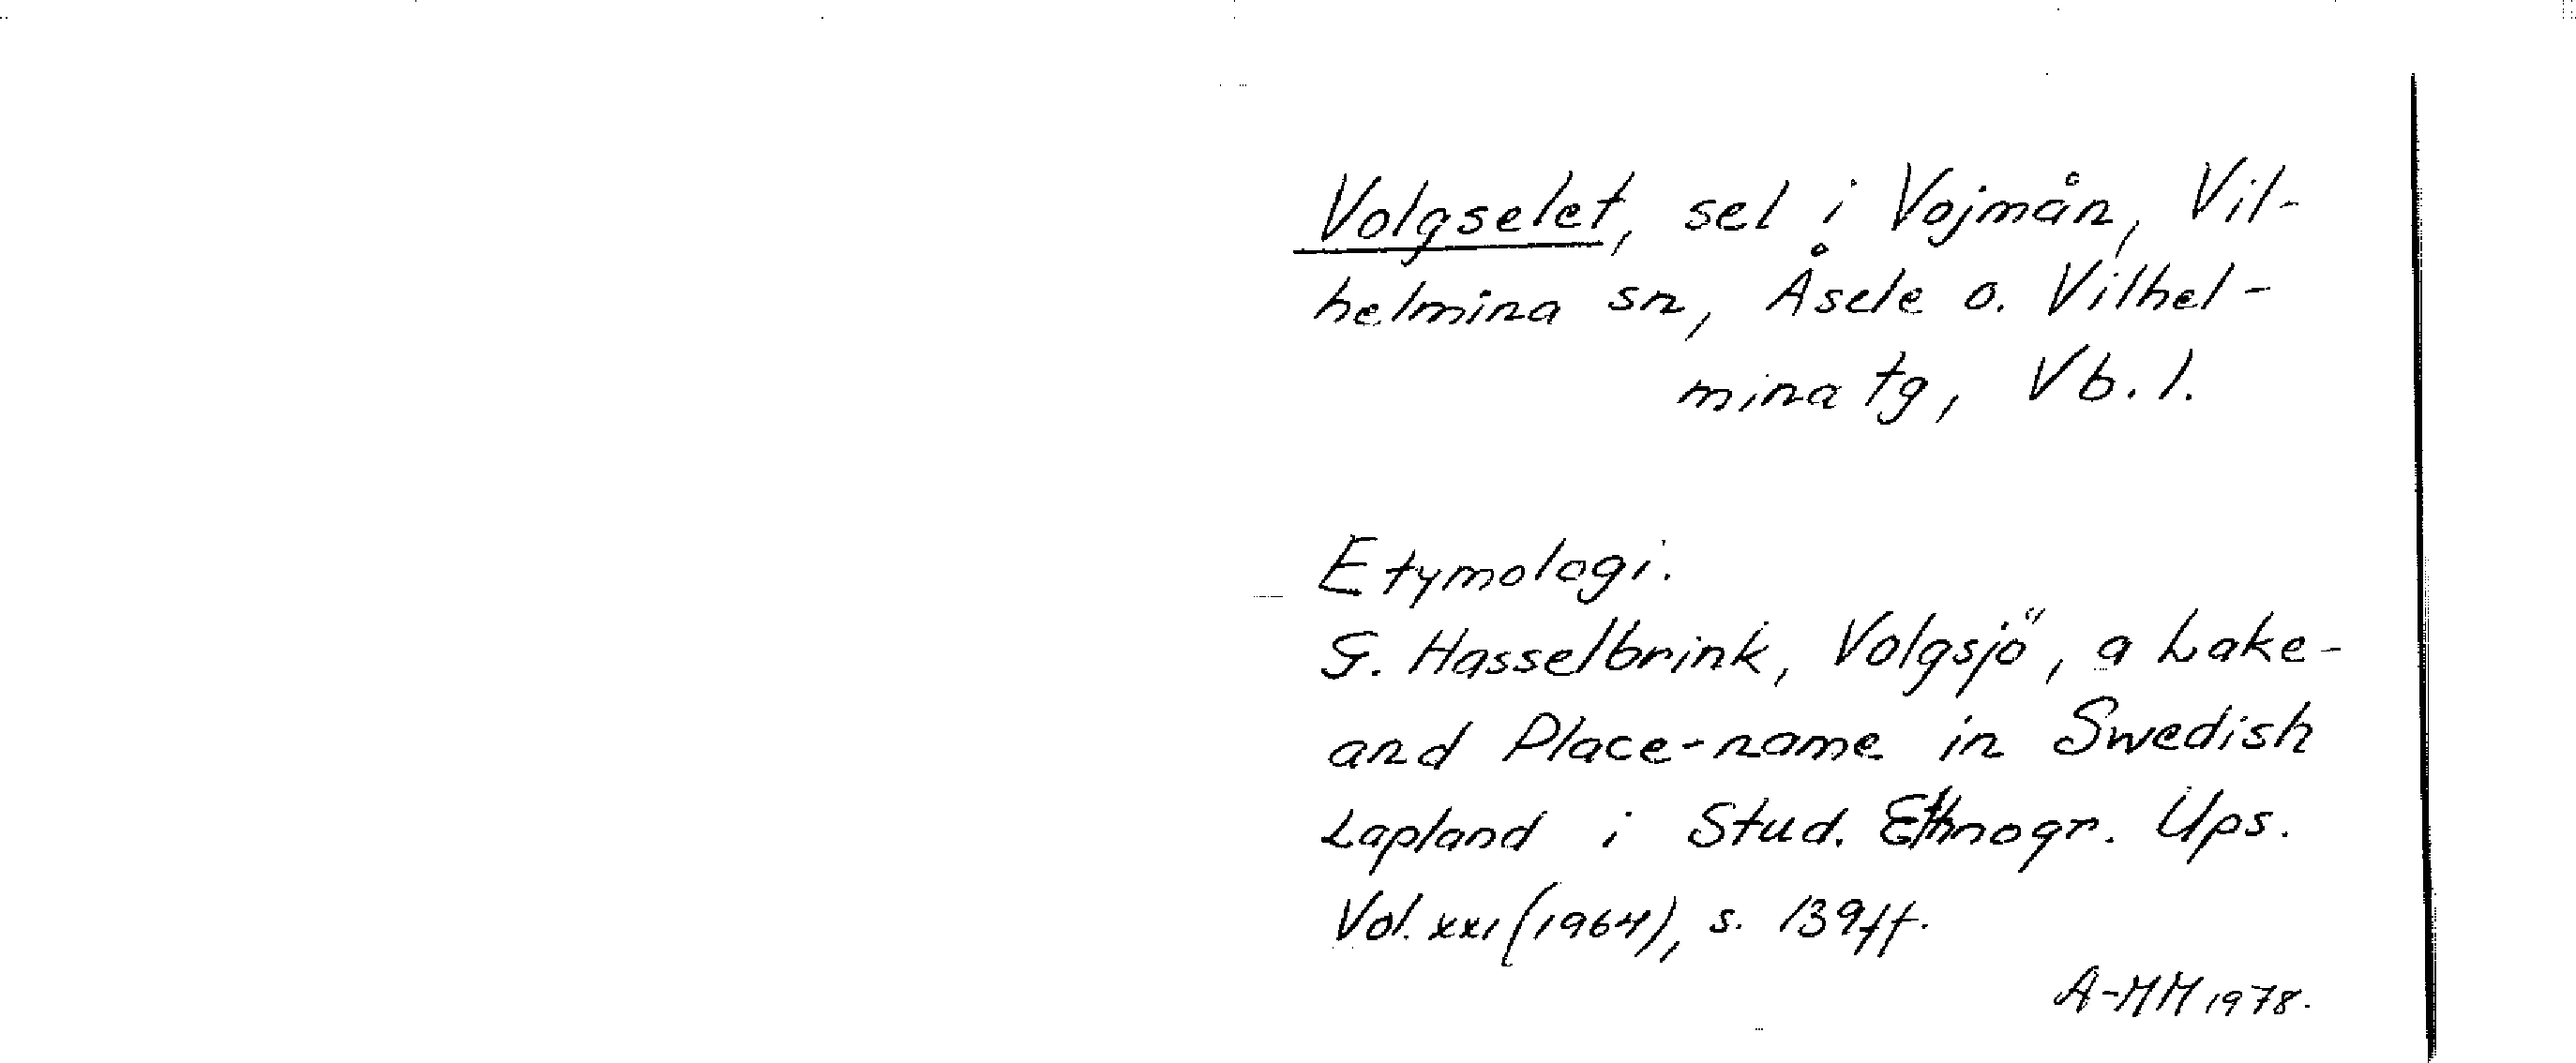 Volgselet, sel i Vojmån, Vil-
helmina sn, Åsele o. Vilhel-
mina tg, Vb. l.
Etymologi.
G. Hasselbrink, Volgsjö, a Lake-
and Place-name in Swedish
Lapland i Stud. Ethnogr. Ups.
Vol. XXI (1964), s. 139ff.
A-MM 1978.